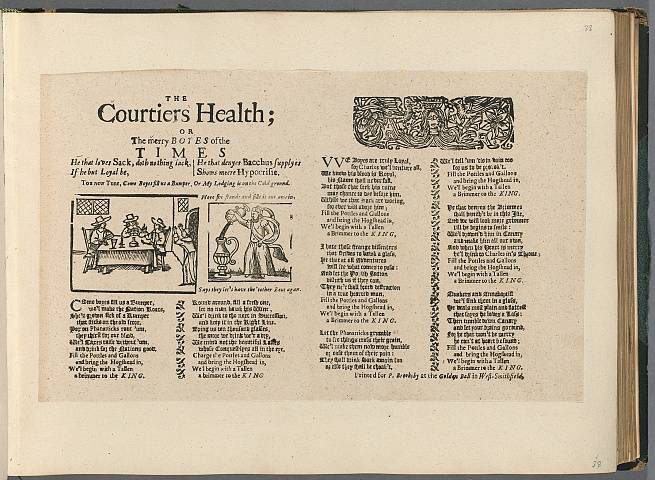 THE
Courtiers Health;
OR
The merry BOYES of the
TIMES
He that loves Sack, doth nothing lack,
If he but Loyal be,
He that denyes Bacchus supplyes
Shows meere Hypocrisie.
To a new Tune, Come Boyes fill us a Bumper, Or My Lodging is on the Cold ground.
Here she stands and fills it out again,
Says they let's have the tother Bout again.
COme boyes fill us a Bumper,
we'l make the Nation Roare,
She's grown sick of a Rumper
that sticks on the old score,
Pox on Phanaticks rout 'um,
they thirst for our blood,
We'l Taxes raise without 'um,
and drink for the Nations good.
Fill the Pottles and Gallons
and bring the Hogshead in,
We'l begin with a Tallen
a brimmer to the KING.
Round around, fill a fresh one,
let no man bawk his Wine,
We'l drink to the next in Succession,
and keep it in the Right Line.
Bring us ten thousand glasses,
the more we drink we're a dry,
We mind not the beautiful Lasses
whose Conquest lyes all in the eye.
Charge the Pottles and Gallons
and bring the Hogshead in,
We'l begin with a Tallen
a brimmer to the KING
WE Boyes are truly Loyal,
for Charles we'l venture all,
We know his blood is Royal,
his Name shall never fall,
But those that seek his ruine
may chance to dye before him,
While we that are woeing,
for ever will adore him;
Fill the Pottles and Gallons
and bring the Hogshead in,
We'l begin with a Tallen
a Brimmer to the KING.
I hate those strange dissenters
that strives to bawk a glass,
He that at all Adventures
will see what comes to pass:
And let the Popish Nation
disturb us if they can,
They ne'r shall breed distraction
in a true hearted man.
Fill the Pottles and Gallons
and bring the Hogshead in,
We'l begin with a Tallen
a Brimmer to the KING.
Let the Phanaticks grumble
to see things cross their grain,
We'l make them now more humble
or ease them of their pain:
They shall drink Sack amain too
or else they shall be choak't,
We'l tell 'um 'tis in vain too
for us to be provok't.
Fill the Pottles and Gallons
and bring the Hogshead in,
We'l begin with a Tallen
a Brimmer to the KING.
He that denyes the Brimmer
shall banish't be in this Isle,
And we will look more grimmer
till he begins to smile:
We'l drown'd him in Canary
and make him all our own,
And when his Heart is merry
he'l drink to Charles in's Throne:
Fill the Pottles and Gallons
and bring the Hogshead in,
We'l begin with a Tallen
a Brimmer to the KING.
Quakers and Anabaptist
we'l sink them in a glass,
He deals most plain and flattest
that sayes he loves a Lass:
Then tumble down Canary
and let your brains go round,
For he that won't be merry
he can't at heart be sound;
Fill the Pottles and Gallons
and bring the Hogshead in,
We'l begin with a Tallen
a Brimmer to the KING.
Printed for P. Brooksby at the Golden Ball in West-Smithfield.